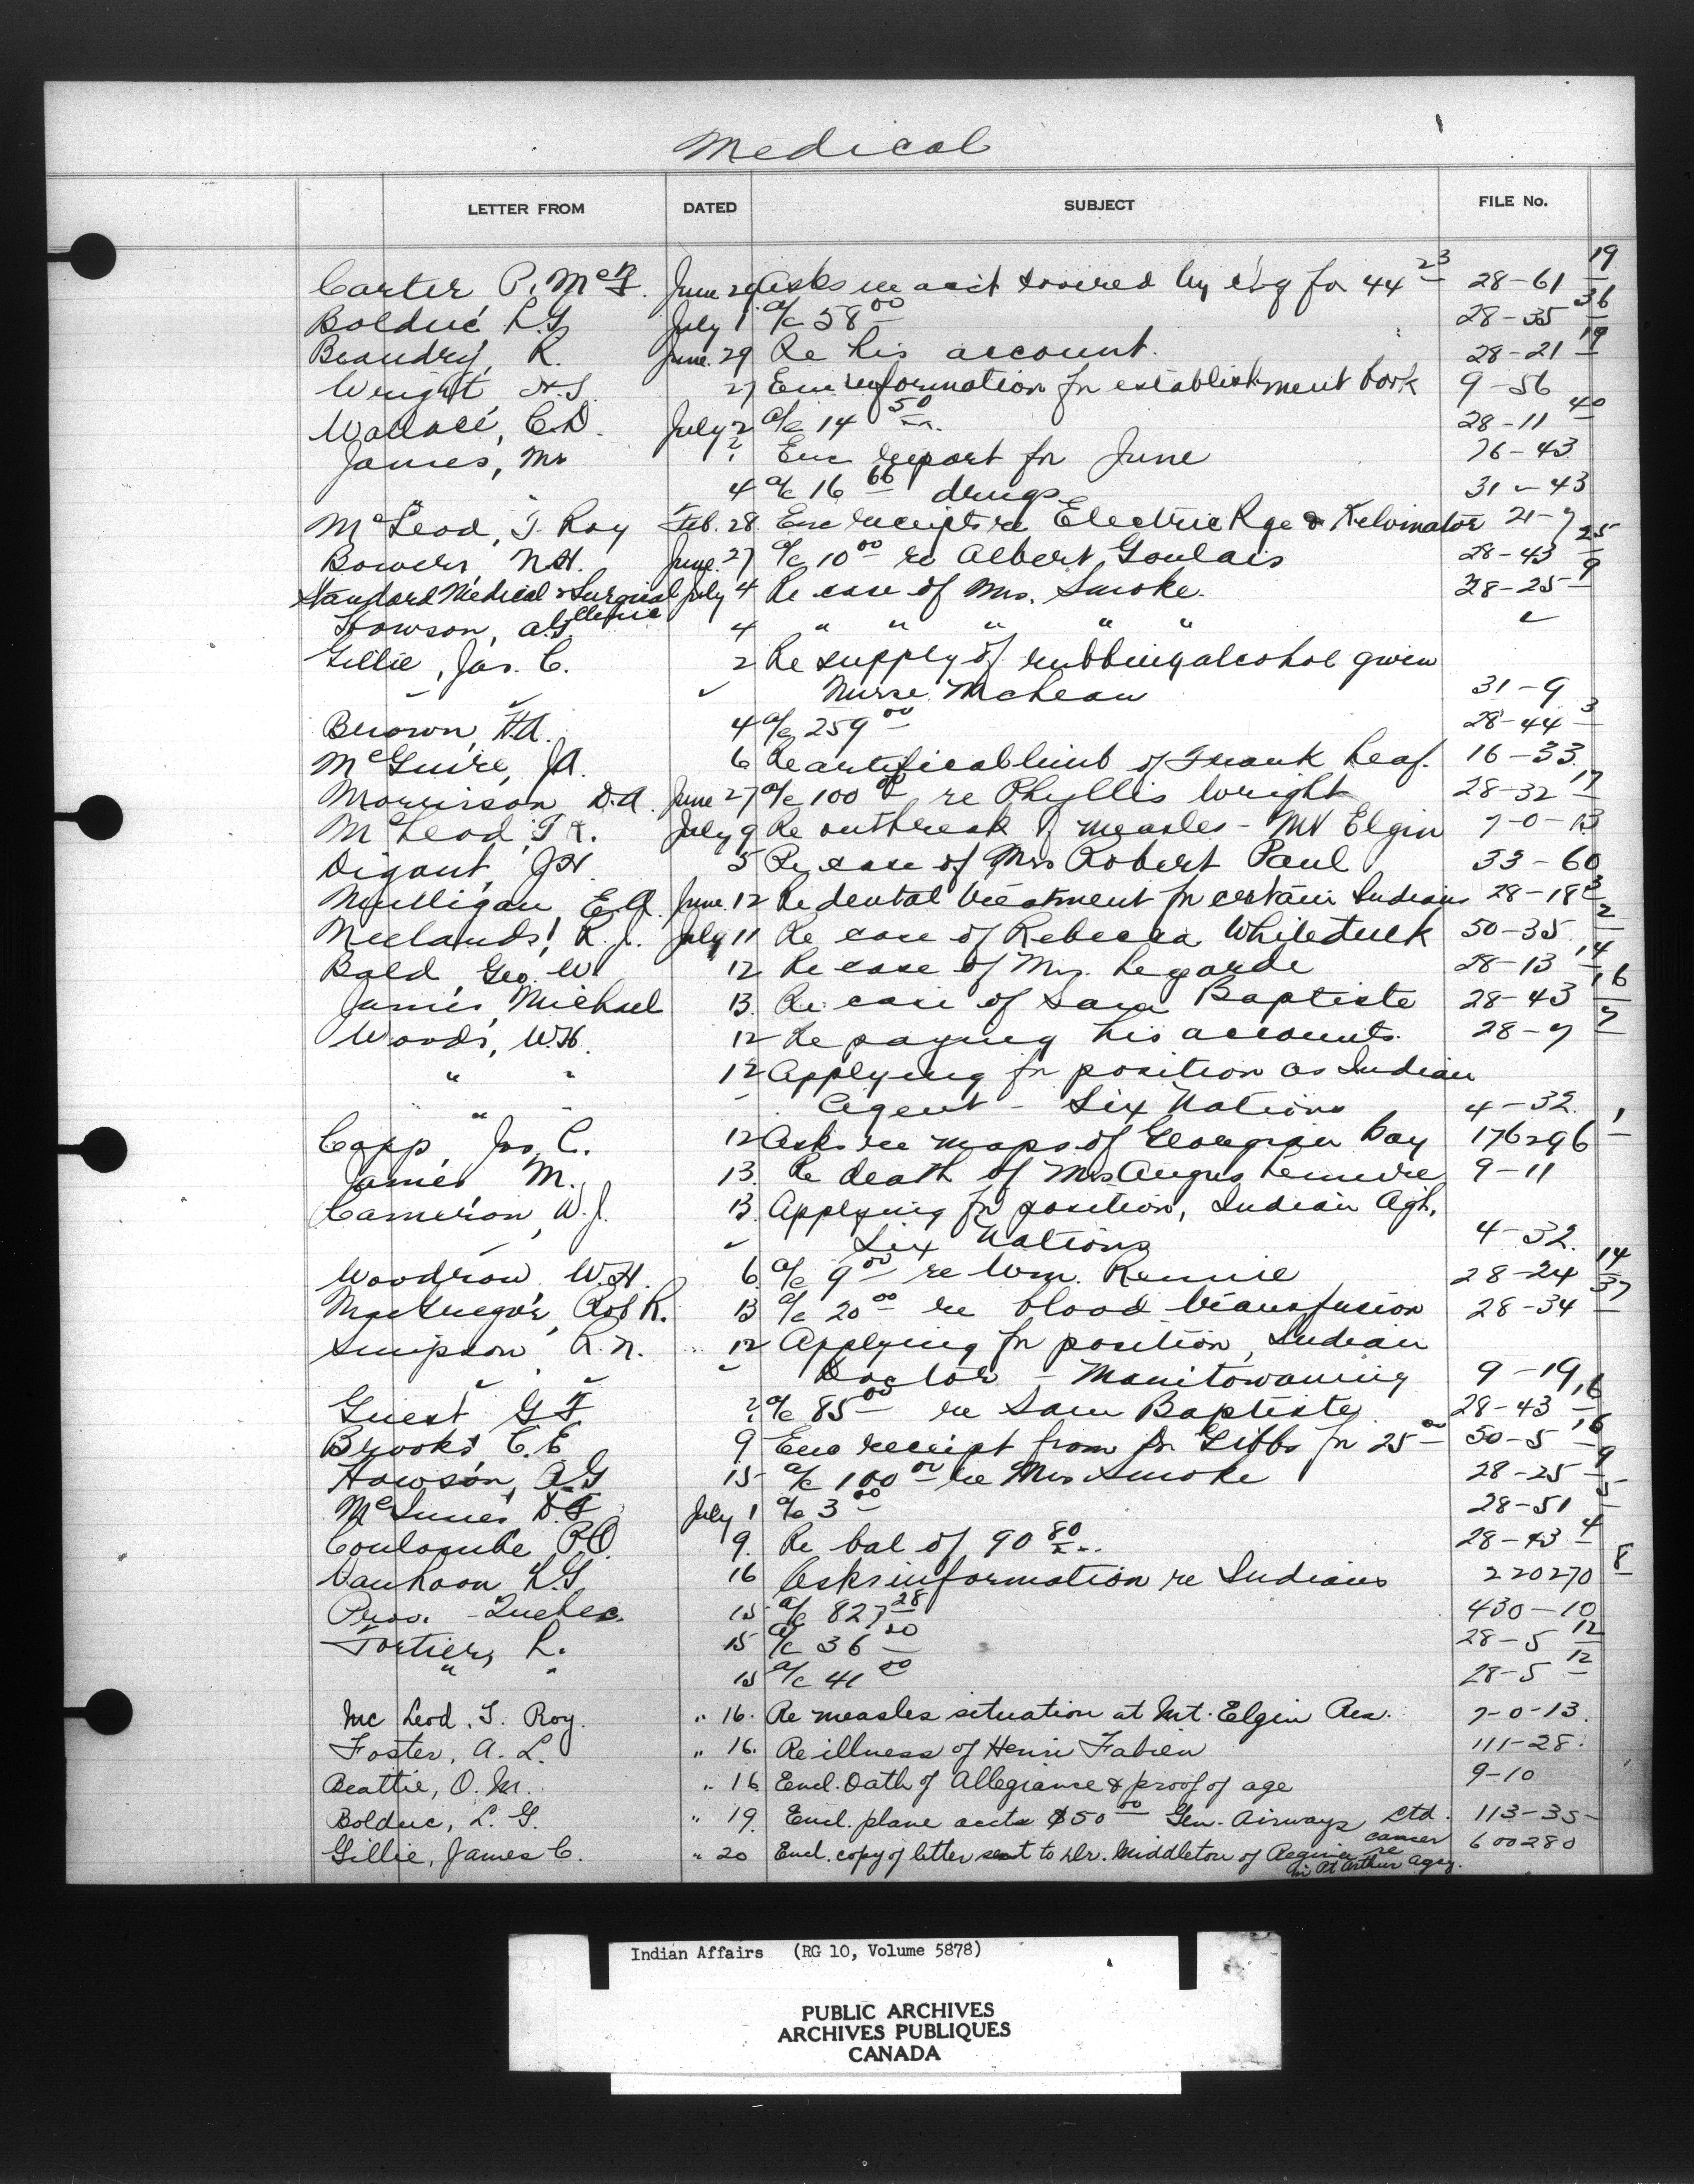 Medical
LETTER FROM DATED SUBJECT FILE No.
Carter, P. McF. June 29 Asks re acct covered by chq for 44 23 28-61 19
Bolduc L.G July 1 a/c 58 00 28-35 36
Beaudry, R. June 29 Re his account. 28-21 19
Wright, H.S. 27 Enc information for establishment book 9-56
Wallace, C.D. July 2 a/c 14 50 28-11 40
James, Mr ? Enc report for June 76-43
" " 4 a/c 16 66 drugs 31-43
McLeod, T. Roy Feb. 28 Enc receipts re Electric Rge & Kelvinator 21-7
Bowers, N.H. June 27 a/c 10 00 re Albert Goulais 28-43 25
Standard Medical & Surgical Clinic July 4 Re case of Mrs. Smoke. 28-25 9
Howson, A.G. 4 " " " " "
Gillie, Jas. C. 2 Re supply of rubbing alcohol given
Nurse McLean 31-9
Brown, H.A. 4 a/c 259 00 28-44 3
McGuire, J.A. 6 Re artificial limb of Frank Leaf. 16-33
Morrison D.A. June 27 a/c 100 00 re Phyllis Wright 28-32 17
McLeod, T.R. July 9 Re outbreak of measles - Mt Elgin 7-0-13
Digant, J.H. 5 Re case of Mrs Robert Paul 33-60
Mulligan, E.A. June 12 Re dental treatment for certain Indians 28-18 3
Neelands, R.J. July 11 Re case of Rebecca Whiteduck 50-35 2
Bald, Geo. W. 12 Re case of Mrs. Legarde 28-13 14
James, Michael 13 Re case of Sam Baptiste 28-43 16
Woods, W.H. 12 Re paying his accounts. 28-7 7
" " 12 Applying for position as Indian
" " Agent - Six Nations 4-32.
Capp, Jas. C. 12 Asks re maps of Georgian Bay 176296 1
James M. 13. Re death of Mrs Angus 9-11
Cameron, W.J. 13 Applying for position, Indian Agt.
Six Nations 4-32.
Woodrow W.H. 6 a/c 9 00 re Wm. Rennie 28-24 14
MacGregor, Robt R. 13 a/c 20 00 re blood transfusion 28-34 37
Simpson R.N. 12 Applying for position, Indian
Doctor - Manitowaning 9-19
Guest G F ? a/c 85 00 re Sam Baptiste 28-43 16
Brooks C.E. 9 Enc receipt from Dr Gibbs for 25 00 50-5 16
Howson, A.G 15 a/c 100 00 re Mrs Smoke 28-25 9
McInnes D.F. July 1 a/c 3 00 28-51 5
Coulombe P.O. 9. Re bal of 90 80 28-43 4
L.G 16 Asks information re Indians 220270 8
Prov. - Quebec. 15 a/c 827 28 430-10
Fortier, L. 15 a/c 36 00 28-5 12
" " 15 a/c 41 00 28-5 12
Mc Leod, T. Roy. " 16. Re measles situation at Mt. Elgin Res. 7-0-13.
Foster, A. L. " 16. Re illness of Henri Fabien 111-28.
Beattie, O. M. " 16 Encl. Oath of Allegiance & proof of age 9-10
Bolduc, L. G. " 19. Encl. plane accts $50 00 Gen. Airways Ltd. 113-35
Gillie, James C. " 20 Encl. copy of letter sent to Dr. Middleton of Regina re cancer 600280
in Pt Arthur Agcy.
Indian Affairs (RG 10, Volume 5878)
PUBLIC ARCHIVES
ARCHIVES PUBLIQUES
CANADA